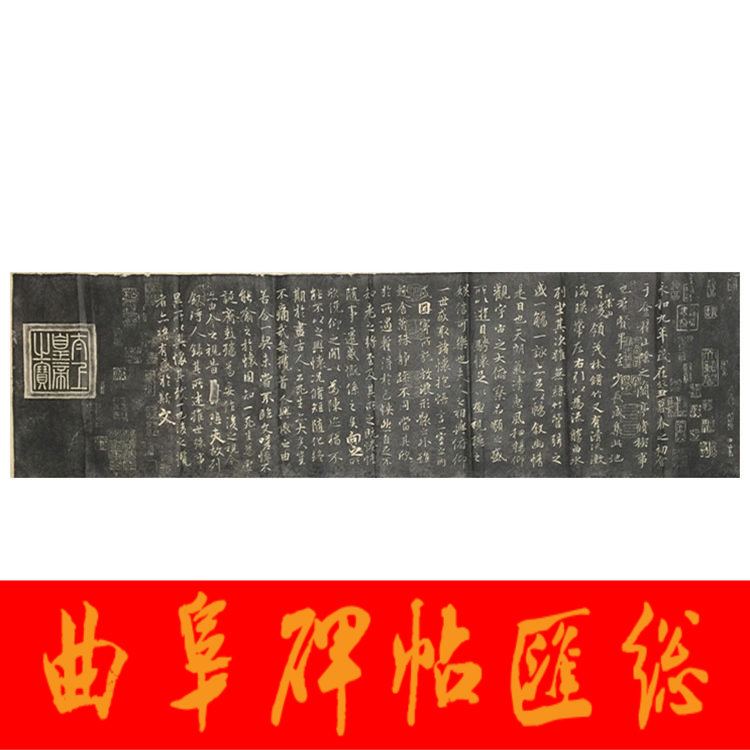 永和九年歲在癸丑暮春之初會
于會稽山陰之蘭亭脩稧事
也群賢畢少長咸此地
峻領茂林脩竹又有清激
湍暎帶左右引以為流觴曲水
列坐其次雖無絲竹管弦之
盛一觴一詠亦足以暢敘幽情
是日也天朗氣清惠風和暢仰
觀宇宙之大俯察品類之盛
所以遊目騁懷足極視聽
娛信樂也夫人之相與俯仰
一世或取諸懷抱悟言一室之內
或因寄所託放浪形骸之外雖
趣舍萬殊靜躁不同當其欣
於所遇暫得於己怏然自足不
知老之將至及其所之既惓情
隨事遷感慨係之矣向之所
欣俛仰之間以為陳迹猶不
能不以之興懷況脩短隨化終
期於盡古人云死生亦大矣豈
不痛哉每攬昔人興感之由
若合一契未嘗不臨文嗟悼不
能喻之於懷固知一死生為虛
誕齊彭殤為妄作後之視今
亦由今之視昔悲夫故列
敘時人錄其所述雖世殊事
異所以興懷其致一也後之攬
者亦將有感於斯文
太上皇帝之寶
曲阜碑帖匯總